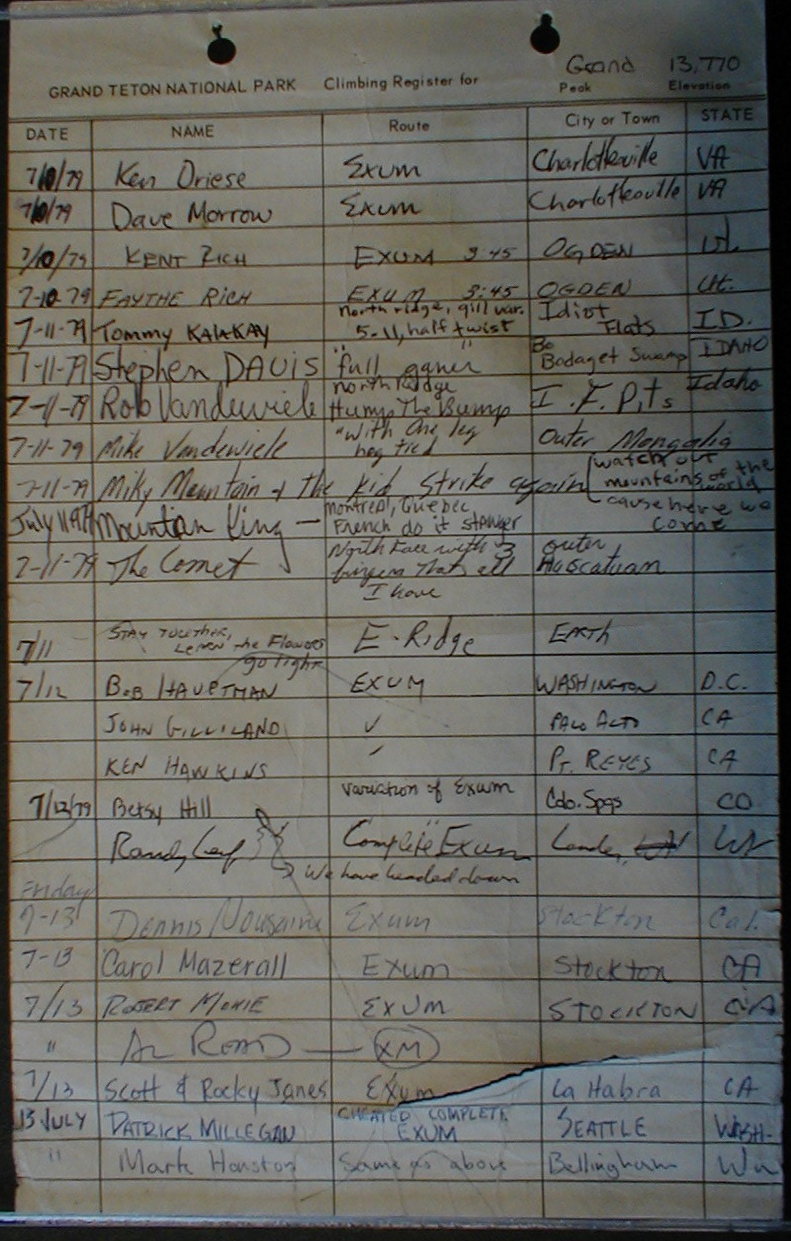 Grand 13,770
GRAND TETON NATIONAL PARK Climbing Register for Peak Elevation
DATE NAME Route City or Town STATE
7/10/79 Ken Driese Exum Charlottesville VA
7/10/79 Dave Morrow Exum Charlottesville VA
7/10/79 KENT RICH EXUM 3:45 OGDEN Ut.
7-10-79 FAYTHE RICH EXUM 3:45 OGDEN Ut.
7-11-79 Tommy KALAKAY north ridge, gill var. 5-11, half twist Idiot Flats I.D.
7-11-79 Stephen DAVIS "full gainer" Bo Badaget Swamp IDAHO
7-11-79 Rob Vandewiele north Ridge Hump The Bump I.F. Pits Idaho
7-11-79 Mike Vandewiele "With One leg hog tied Outer Mongolia
7-11-79 Miky Mountain & the kid strike again watch out mountains of the world cause here we come
July 11 1979 Mountain King — Montreal, Quebec French do it stronger
7-11-79 The Comet North Face with 3 fingers Thats all I have outer
7/11 STAY TOGETHER, LEARN the Flowers go light E-Ridge EARTH
7/12 BOB HAUPTMAN EXUM WASHINGTON D.C.
JOHN GILLILAND ✓ PALO ALTO CA
KEN HAWKINS Pt. REYES CA
7/12/79 Betsy Hill Variation of Exum Colo. Spgs CO
Randy "Complete" Exum Lander, WY
We have headed down
Friday
7-13 Dennis Exum Stockton Cal.
7-13 Carol Mazerall Exum Stockton CA
7/13 ROBERT EXUM STOCKTON CA
" AL READ — XM
7/13 Scott & Rocky Janes Exum La Habra CA
13 JULY PATRICK MILLEGAN CHEATED COMPLETE EXUM SEATTLE WASH.
" Mark Houston Same as above Bellingham Wa